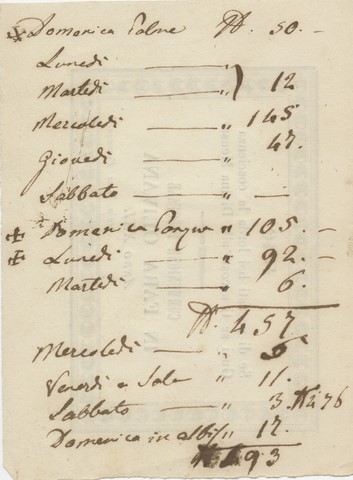 ✠ Domenica Palme ₶. 50. –
Lunedì — „
Martedì — „ ) 12
Mercoledì — „ 145
Giovedì — „ 47.
Sabbato — „ —
✠ Domenica Pasqua „ 105. –
✠ Lunedì — „ 92. –
Martedì — „ 6.
₶. 457
Mercoledì — „
Venerdì e Sole „ 11.
Sabbato — „ 3.
Domenica in albis „ 17.